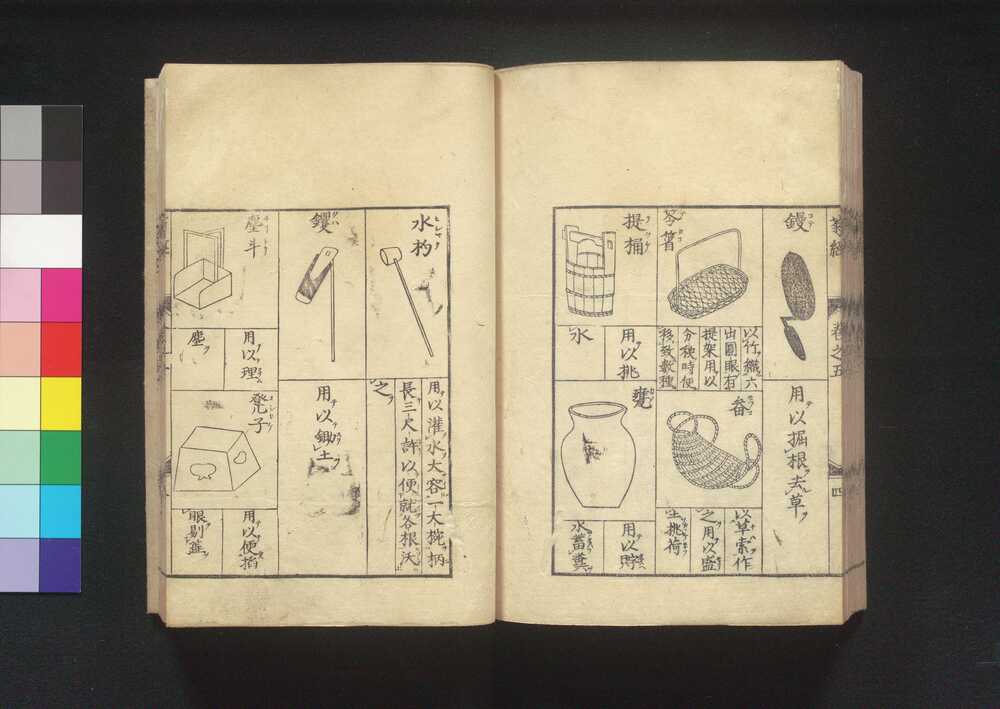 巻之五
四
鏝
用以掘根去草
以竹織六
出圓眼有
提架用以
分秧時便
移致數種
畚
以草索作
之用以盛
土挑荷
提桶
用以挑
水
甕
用以貯
水蓄糞
水杓
用以灌水大容一大椀柄
長三尺許以便就各根沃
之
钁
用以鋤土
塵斗
用以理
塵
凳子
用以便
眼剔